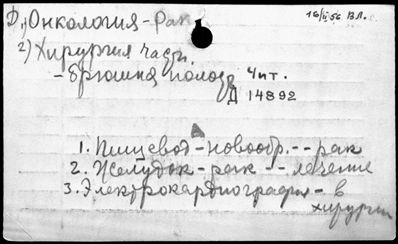 Д 1) Онкология - Рак
16/II 56 ВЛ.
2) Хирургия частн.
- брюшна полозр Чит.
Д 14892
1. Пищевод - новообр. - - рак
2. Желудок - рак - - лечение
3. Электрокардиография - в
хирургии